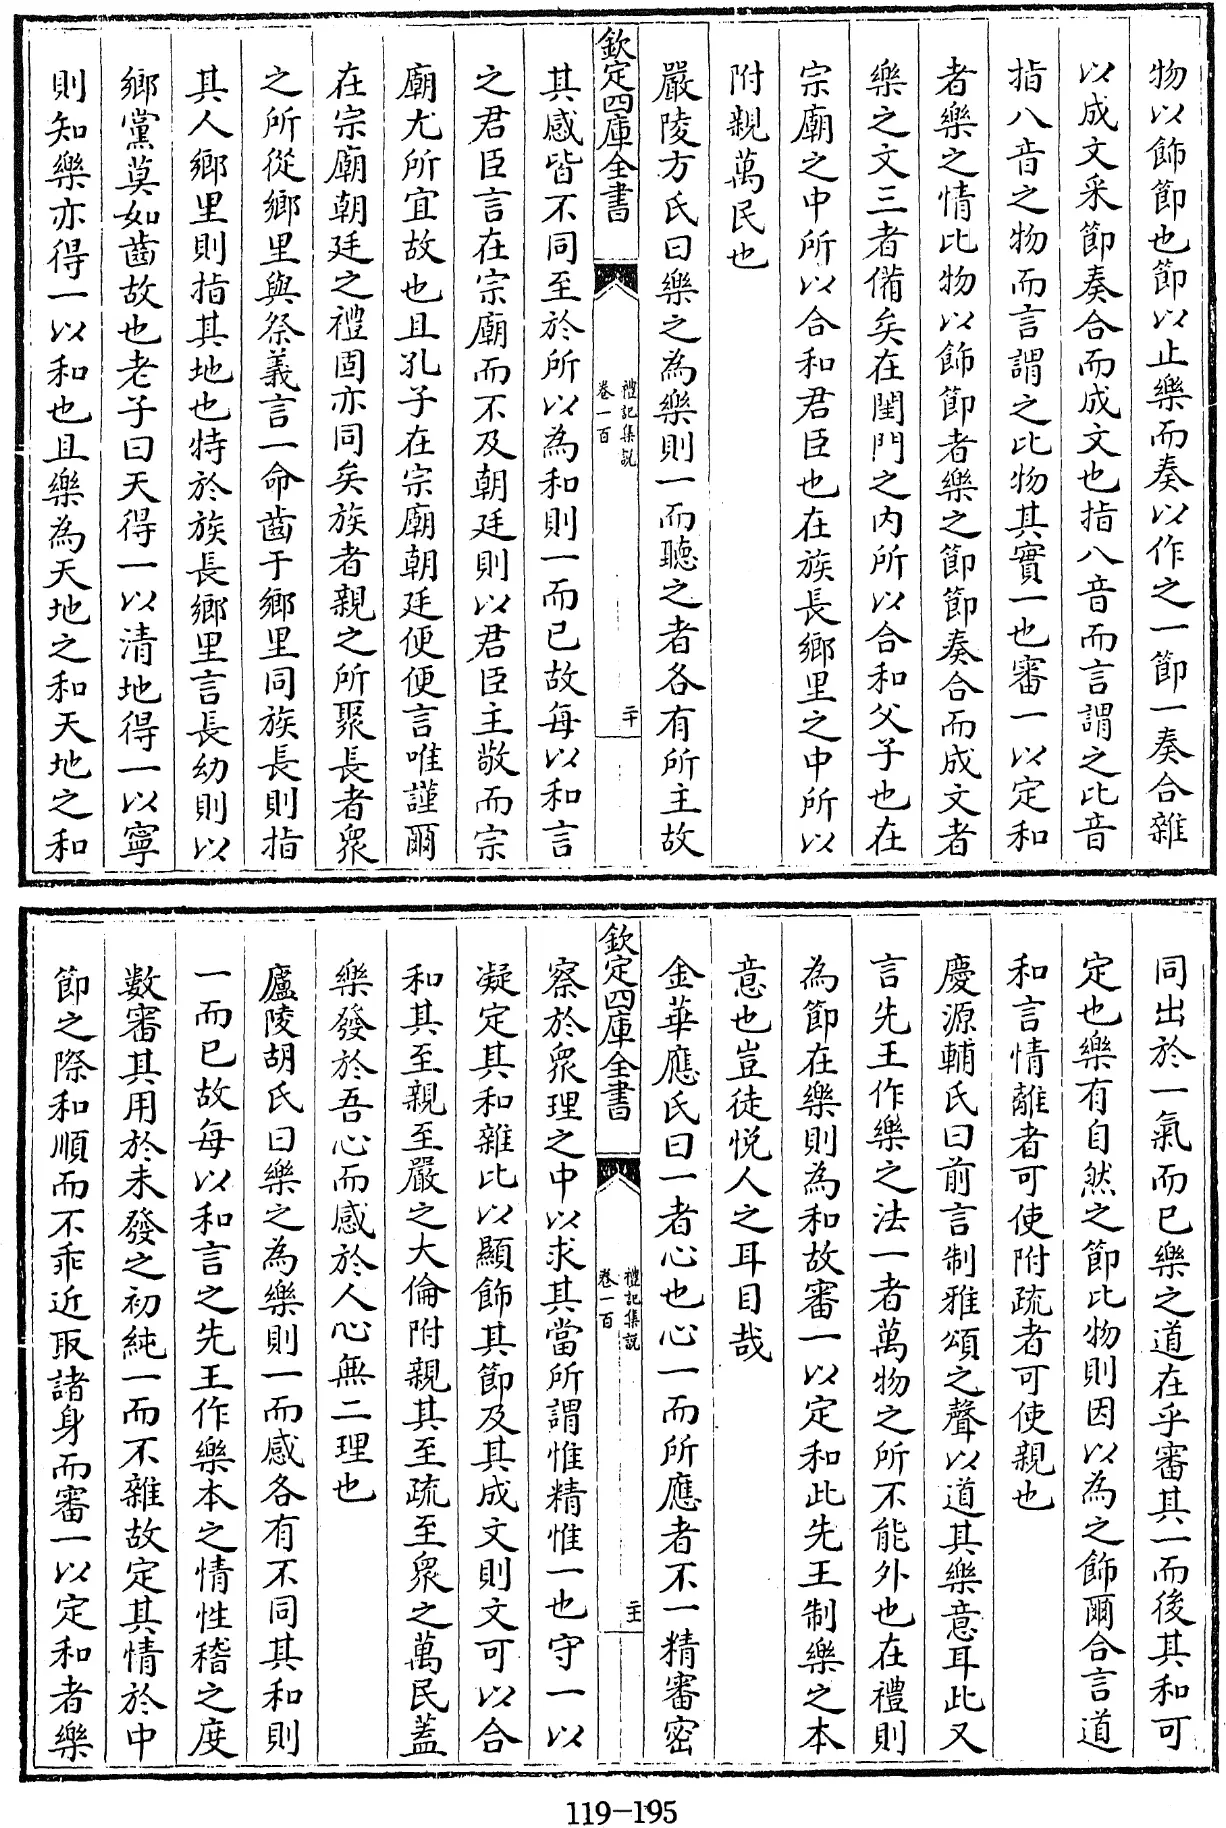 物以飾節也節以止樂而奏以作之一節一奏合雜
以成文采節奏合而成文也指八音而言謂之比音
指八音之物而言謂之比物其實一也審一以定和
者樂之情比物以飾節者樂之節節奏合而成文者
樂之文三者備矣在閨門之内所以合和父子也在
宗廟之中所以合和君臣也在族長鄉里之中所以
附親萬民也
嚴陵方氏曰樂之為樂則一而聽之者各有所主故
欽定四庫全書
禮記集說
卷一百
二十
其感皆不同至於所以為和則一而已故每以和言
之君臣言在宗廟而不及朝廷則以君臣主敬而宗
廟尤所宜故也且孔子在宗廟朝廷便便言唯謹爾
在宗廟朝廷之禮固亦同矣族者親之所聚長者衆
之所從鄉里與祭義言一命齒于鄉里同族長則指
其人鄉里則指其地也特於族長鄉里言長幼則以
鄉黨莫如齒故也老子曰天得一以清地得一以寧
則知樂亦得一以和也且樂為天地之和天地之和
同出於一氣而已樂之道在乎審其一而後其和可
定也樂有自然之節比物則因以為之飾爾合言道
和言情離者可使附疏者可使親也
慶源輔氏曰前言制雅頌之聲以道其樂意耳此又
言先王作樂之法一者萬物之所不能外也在禮則
為節在樂則為和故審一以定和此先王制樂之本
意也豈徒悅人之耳目哉
金華應氏曰一者心也心一而所應者不一精審密
欽定四庫全書
禮記集說
卷一百
二十一
察於衆理之中以求其當所謂惟精惟一也守一以
凝定其和雜比以顯飾其節及其成文則文可以合
和其至親至嚴之大倫附親其至疏至衆之萬民蓋
樂發於吾心而感於人心無二理也
廬陵胡氏曰樂之為樂則一而感各有不同其和則
一而已故每以和言之先王作樂本之情性稽之度
數審其用於未發之初純一而不雜故定其情於中
節之際和順而不乖近取諸身而審一以定和者樂
119-195